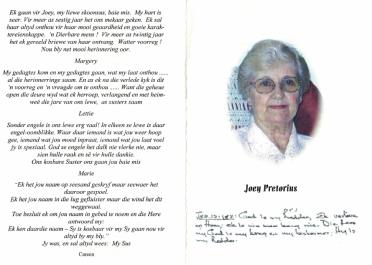 Ek gaan vir Joey, my liewe skoonsus, baie mis. My hart is
seer. Vir meer as sestig jaar het ons mekaar geken. Ek sal
haar altyd onthou vir haar mooi geaardheid en goeie karak-
tereienskappe. 'n Dierbare mens ! Vir meer as twintig jaar
het ek gereeld briewe van haar ontvang. Watter voorreg !
Nou bly net mooi herinnering oor.
Margery
My gedagtes kom en my gedagtes gaan, wat my laat onthou .....
al die herinnerings saam. En as ek na die verlede kyk is dit
'n voorreg en 'n vreugde om te onthou ..... Want die geheue
open die deure wyd wat ek herroep, verlangend en met heim-
weë die jare van ons lewe, as susters saam
Lettie
Sonder engele is ons lewe erg vaal! In elkeen se lewe is daar
engel-oomblikke. Waar daar iemand is wat jou weer hoop
gee, iemand wat jou moed inpraat, iemand wat jou laat voel
jy is spesiaal. God se engele het dalk nie vlerke nie, maar
sien hulle raak en sê vir hulle dankie.
Ons kosbare Suster ons gaan jou baie mis
Marie
"Ek het jou naam op seesand geskryf maar seewaer het
daaroor gespoel.
Ek het jou naam in die lug gefluister maar die wind het dit
weggewaai.
Toe besluit ek om jou naam in gebed te noem en die Here
antwoord my:
Ek ken daardie naam – Sy is kosbaar vir my Sy gaan nou vir
altyd by my bly."
Jy was, en sal altyd wees: My Sus
Joey Pretorius
God is my